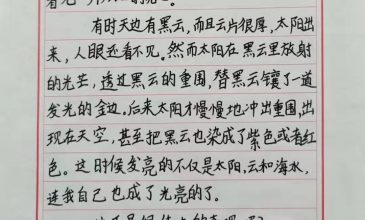 有时天边有黑云,而且云片很厚,太阳出
来,人眼还看不见。然而太阳在黑云里放射
的光芒,透过黑云的重围,替黑云镶了一道
发光的金边。后来太阳才慢慢地冲出重围,出
现在天空,甚至把黑云也染成了紫色或者红
色。这时候发亮的不仅是太阳,云和海水,
连我自己也成了光亮的了。